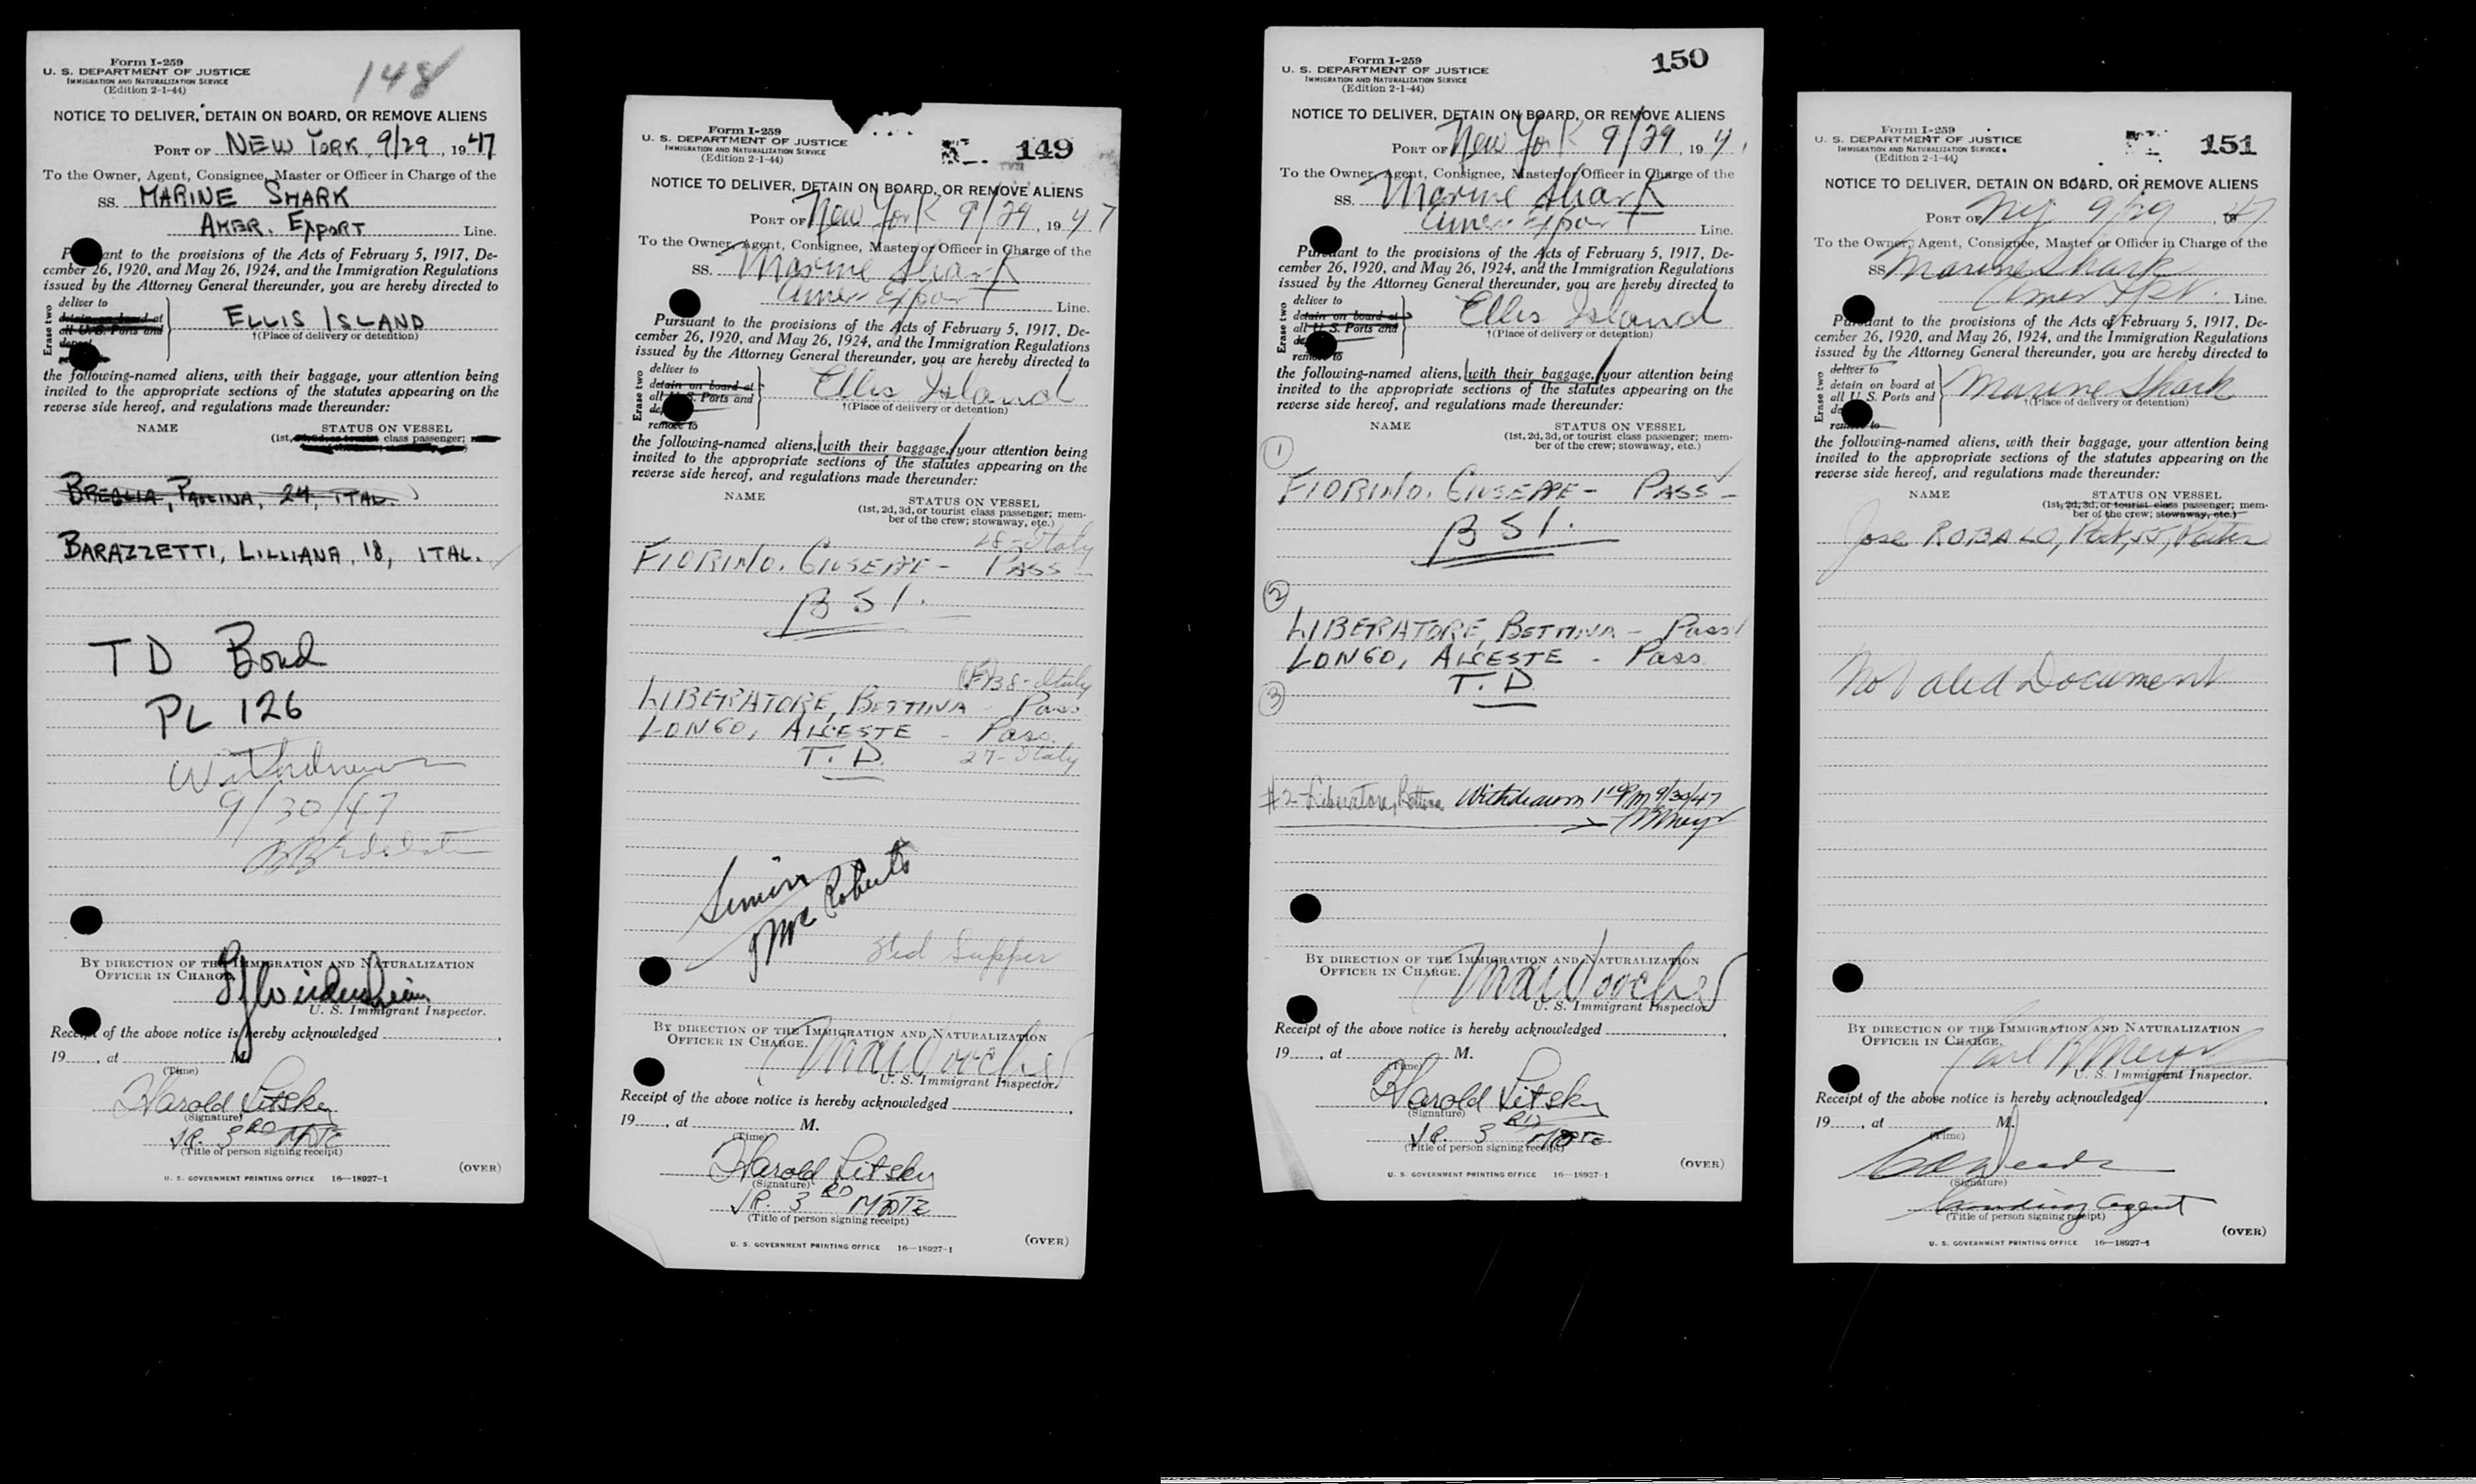 Form I-259
U. S. DEPARTMENT OF JUSTICE
IMMIGRATION AND NATURALIZATION SERVICE
(Edition 2-1-44)
148
NOTICE TO DELIVER, DETAIN ON BOARD, OR REMOVE ALIENS
PORT OF NEW YORK, 9/29, 1947
To the Owner, Agent, Consignee, Master or Officer in Charge of the
SS. MARINE SHARK
AMER. EXPORT Line.
Pursuant to the provisions of the Acts of February 5, 1917, De-
cember 26, 1920, and May 26, 1924, and the Immigration Regulations
issued by the Attorney General thereunder, you are hereby directed to
Erase two
deliver to
detain on board at
all U. S. Ports and
deport
remove to
ELLIS ISLAND
†(Place of delivery or detention)
the following-named aliens, with their baggage, your attention being
invited to the appropriate sections of the statutes appearing on the
reverse side hereof, and regulations made thereunder:
NAME STATUS ON VESSEL
(1st, 2d, 3d, or tourist class passenger;
BREGLIA, 24, ITAL.
BARAZZETTI, LILLIANA, 18, ITAL.
TD Bond
PL 126
Withdrawn
9/30/47
BY DIRECTION OF THE IMMIGRATION AND NATURALIZATION
OFFICER IN CHARGE.
U. S. Immigrant Inspector.
Receipt of the above notice is hereby acknowledged
19, at M.
(Time)
Harold Litsky
(Signature)
JR. 3RD MATE
(Title of person signing receipt)
(OVER)
U. S. GOVERNMENT PRINTING OFFICE 16—18927-1
Form I-259
U. S. DEPARTMENT OF JUSTICE
IMMIGRATION AND NATURALIZATION SERVICE
(Edition 2-1-44)
149
NOTICE TO DELIVER, DETAIN ON BOARD, OR REMOVE ALIENS
PORT OF New York 9/29, 1947
To the Owner, Agent, Consignee, Master or Officer in Charge of the
SS. Marine Shark
Amer Export Line.
Pursuant to the provisions of the Acts of February 5, 1917, De-
cember 26, 1920, and May 26, 1924, and the Immigration Regulations
issued by the Attorney General thereunder, you are hereby directed to
Erase two
deliver to
detain on board at
all U. S. Ports and
deport
remove to
Ellis Island
†(Place of delivery or detention)
the following-named aliens, with their baggage, your attention being
invited to the appropriate sections of the statutes appearing on the
reverse side hereof, and regulations made thereunder:
NAME STATUS ON VESSEL
(1st, 2d, 3d, or tourist class passenger; mem-
ber of the crew; stowaway, etc.)
28-Italy
FIORINO, GIUSEPPE - PASS -
BSI.
(F) 38-Italy
LIBERATORE, BETTINA - Pass
LONGO, ALCESTE - Pass.
T. D. 27-Italy
Simin
McRoberts
3td Supper
BY DIRECTION OF THE IMMIGRATION AND NATURALIZATION
OFFICER IN CHARGE.
U. S. Immigrant Inspector.
Receipt of the above notice is hereby acknowledged
19, at M.
(Time)
Harold Litsky
(Signature)
JR. 3RD MATE
(Title of person signing receipt)
(OVER)
U. S. GOVERNMENT PRINTING OFFICE 16—18927-1
Form I-259
U. S. DEPARTMENT OF JUSTICE
IMMIGRATION AND NATURALIZATION SERVICE
(Edition 2-1-44)
150
NOTICE TO DELIVER, DETAIN ON BOARD, OR REMOVE ALIENS
PORT OF New York 9/29, 194
To the Owner, Agent, Consignee, Master or Officer in Charge of the
SS. Marine Shark
Amer Export Line.
Pursuant to the provisions of the Acts of February 5, 1917, De-
cember 26, 1920, and May 26, 1924, and the Immigration Regulations
issued by the Attorney General thereunder, you are hereby directed to
Erase two
deliver to
detain on board at
all U. S. Ports and
deport
remove to
Ellis Island
†(Place of delivery or detention)
the following-named aliens, with their baggage, your attention being
invited to the appropriate sections of the statutes appearing on the
reverse side hereof, and regulations made thereunder:
NAME STATUS ON VESSEL
(1st, 2d, 3d, or tourist class passenger; mem-
ber of the crew; stowaway, etc.)
1
FIORINO, GIUSEPPE - PASS -
BSI.
2
LIBERATORE, BETTINA - Pass
LONGO, ALCESTE - Pass
3 T. D.
#2 Liberatore, Bettina Withdrawn 1 10 PM 9/30/47
BY DIRECTION OF THE IMMIGRATION AND NATURALIZATION
OFFICER IN CHARGE.
U. S. Immigrant Inspector
Receipt of the above notice is hereby acknowledged
19, at M.
(Time)
Harold Litsky
(Signature)
JR. 3RD MATE
(Title of person signing receipt)
(OVER)
U. S. GOVERNMENT PRINTING OFFICE 16—18927-1
Form I-259
U. S. DEPARTMENT OF JUSTICE
IMMIGRATION AND NATURALIZATION SERVICE
(Edition 2-1-44)
151
NOTICE TO DELIVER, DETAIN ON BOARD, OR REMOVE ALIENS
PORT OF NY 9/29, 1947
To the Owner, Agent, Consignee, Master or Officer in Charge of the
SS. Marine Shark
Amer Exp. Line.
Pursuant to the provisions of the Acts of February 5, 1917, De-
cember 26, 1920, and May 26, 1924, and the Immigration Regulations
issued by the Attorney General thereunder, you are hereby directed to
Erase two
deliver to
detain on board at
all U. S. Ports and
deport
remove to
Marine Shark
†(Place of delivery or detention)
the following-named aliens, with their baggage, your attention being
invited to the appropriate sections of the statutes appearing on the
reverse side hereof, and regulations made thereunder:
NAME STATUS ON VESSEL
(1st, 2d, 3d, or tourist class passenger; mem-
ber of the crew; stowaway, etc.)
Jose ROBALO, Port, 55,
No Valid Document
BY DIRECTION OF THE IMMIGRATION AND NATURALIZATION
OFFICER IN CHARGE.
U. S. Immigrant Inspector.
Receipt of the above notice is hereby acknowledged
19, at M.
(Time)
(Signature)
Landing Agent
(Title of person signing receipt)
(OVER)
U. S. GOVERNMENT PRINTING OFFICE 16—18927-1